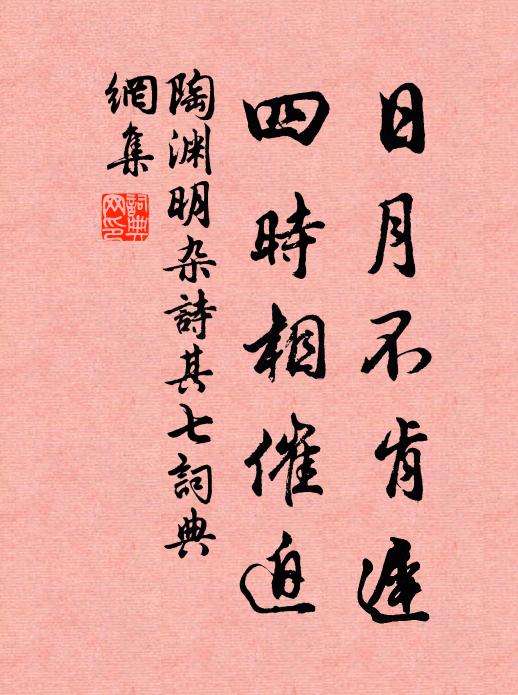 日月不肯遲
四時相催迫
陶渊明杂詩其七詞典
網集
詞典
网印